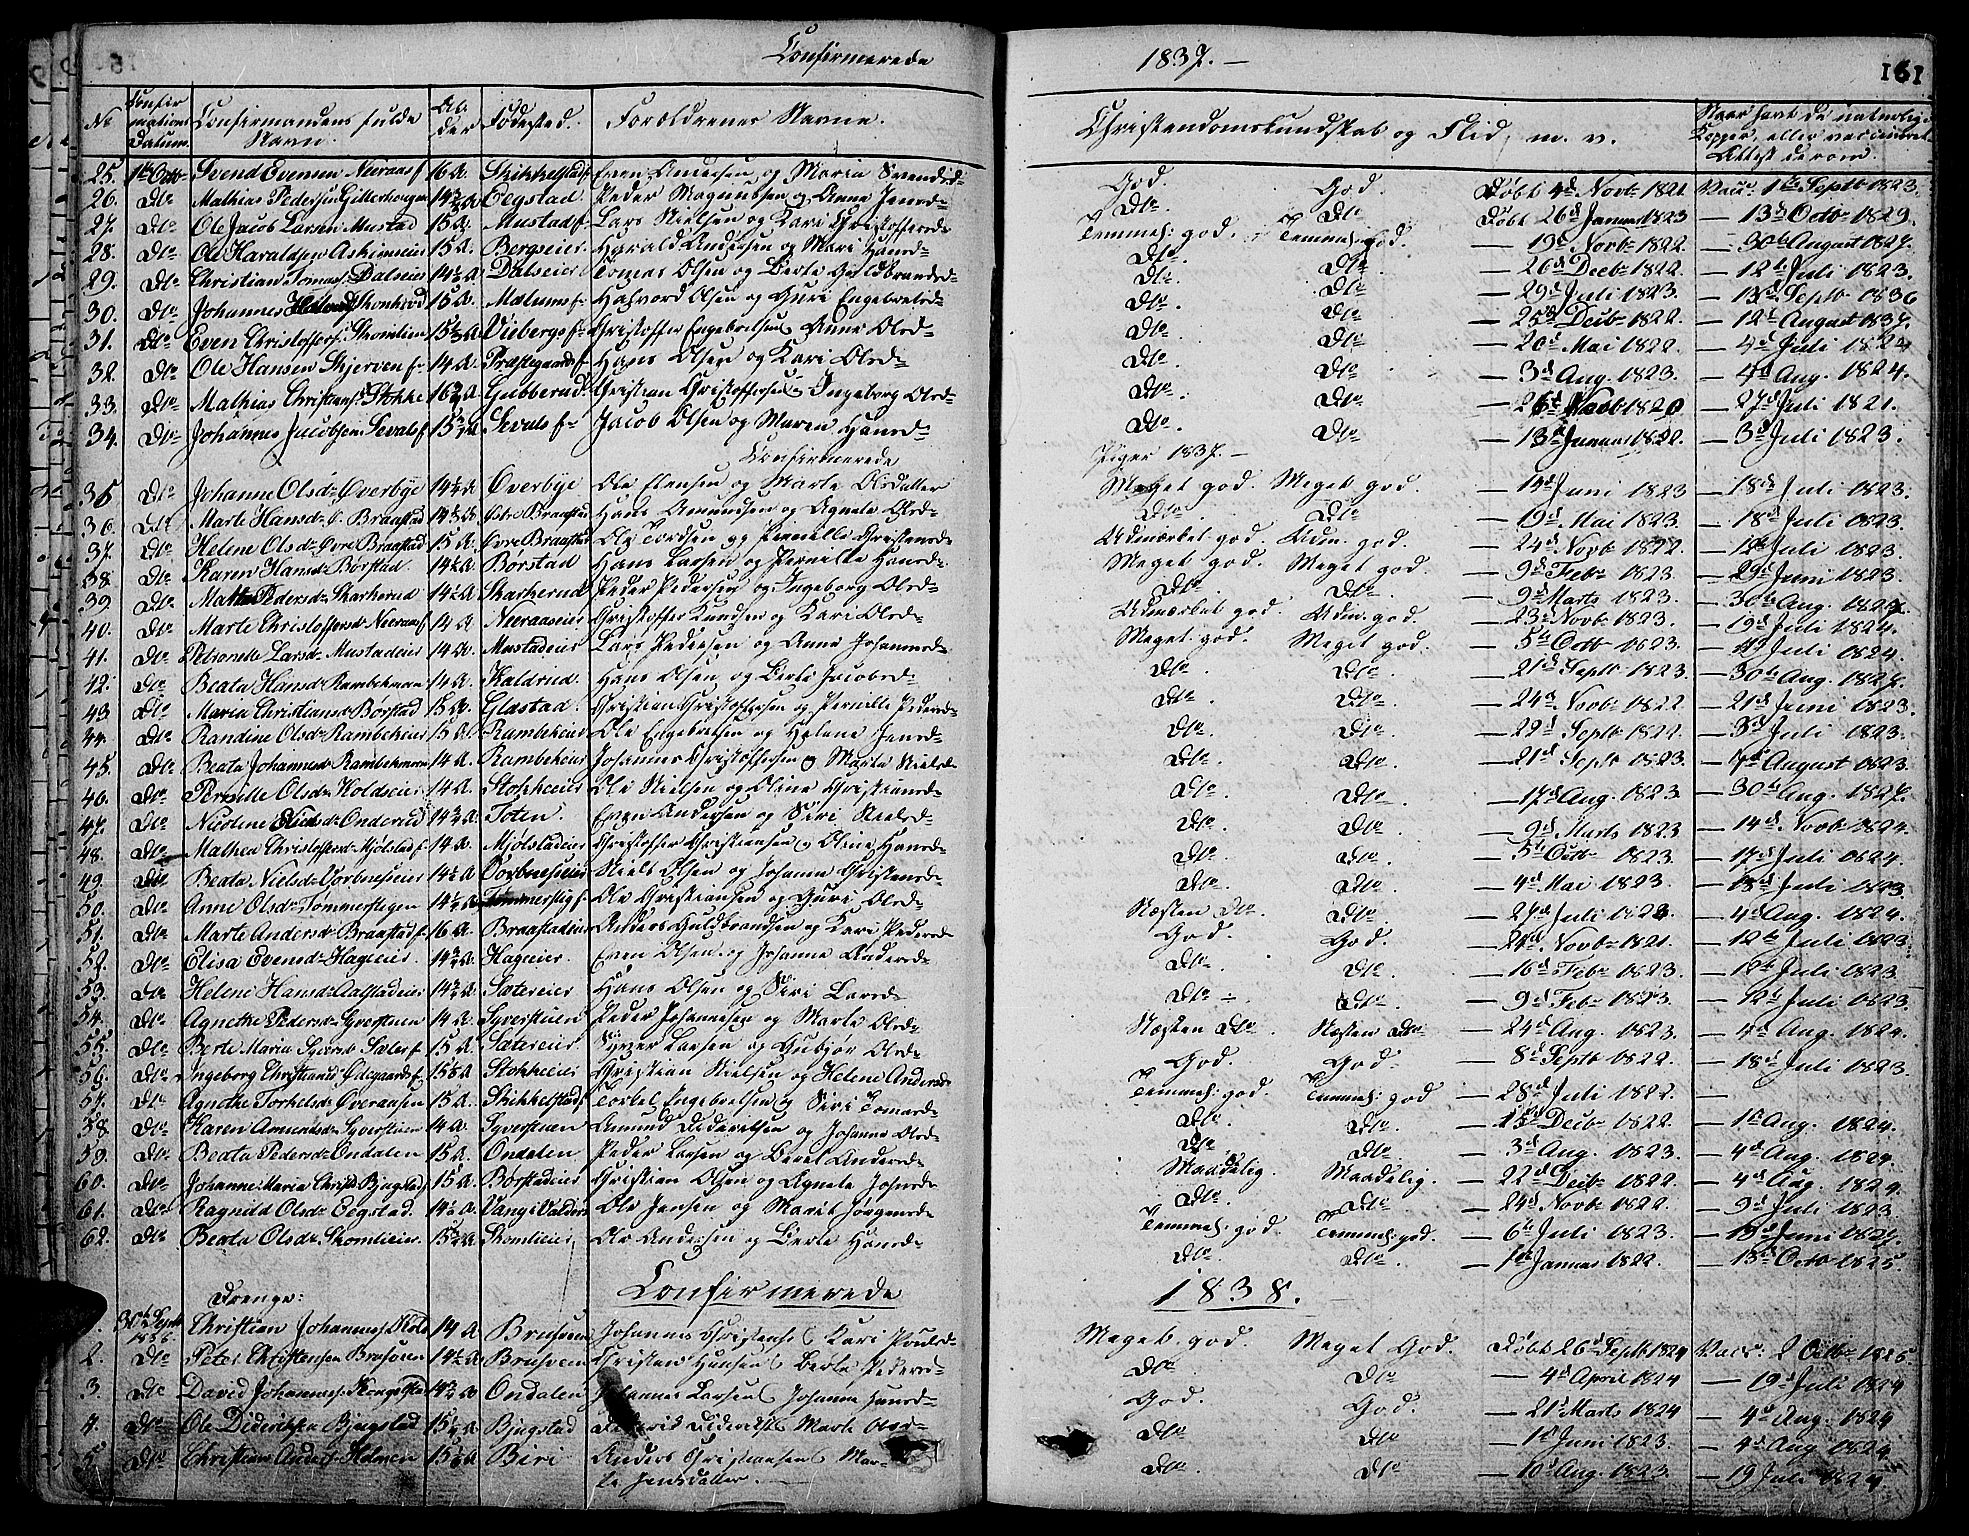 Confirmerede 1837. — 161
No Confirmations Datum. Confirmandens fulde Navn. Alder Fødested. Forældrenes Navne. Christendomskundskab og Flid, m. v. Naar havt de naturlige Kopper, eller vaccineret Attest derom.
25. 1te Octb Svend Evensen Neeraas f 16 A. Skikkelstad f Even Andersen og Maria Svendsd God. God. Døbt 4d Novb 1821 Vacc. 1te Septb 1823.
26. Dto Mathias Pedersen 14 A Eegstad Peder Magnussen og Anne Jensd Dto Dto Døbt 26d Januar 1823 — 13d Octb 1829.
27. Dto Ole Jacob Larsen Mustad 15 A. Mustad f Lars Nielsen og Kari Christoffersd Temmel: god. Temmel: god. — 19d Novb 1822 — 30te August 1827.
28. Dto Ole Haraldsen 15 A. Bergseier Harald Andersen og Mari Hansd Dto Dto — 26d Decb 1822. — 12te Juli 1823.
29. Dto Christian Tomass Dalseier 14½ A. Dalseier Tomas Olsen og Berte Guldbrandsd Dto Dto — 29d Juli 1823. — 13d Septb 1836
30. Dto Johannes 15 A. Mælums f Halvord Olsen og Guri Engebretsd Dto Dto — 25d Decb 1822. — 12te August 1837.
31. Dto Even Christoffers Skomlien 15 A Vieberg f Christoffer Engebretsen Anne Olsd Dto Dto — 20d Mai 1822. — 4d Juli 1824
32. Dto Ole Hansen Skjerven f 14 A. Præstegaard f Hans Olsen og Kari Olsd Dto Dto — 3d Aug. 1823. — 4d Aug. 1824.
33. Dto Mathias Christians Stokke 16 A Gubberud Christian Christoffersen Ingeborg Olsd Dto Dto — 26d 1820 — 27d Juli 1821.
34. Dto Johannes Jacobsen Sevals f 15 A Sevals f Jacob Olsen og Maren Hansd Dto Dto — 13d Januar 1822. — 3d Juli 1823.
Confirmerede Piger 1837. —
35 Dto Johanne Olsd Øverbye 14½ A Øverbye Ole Hansen og Marte Olsdatter Meget god. Meget god. — 14d Juni 1823 — 18d Juli 1823.
36. Dto Marte Hansd Braastad 14 A. Øvre Braastad Hans Amundsen og Agnete Olsd Dto Dto — 19d Mai 1823. — 18d Juli 1823.
37. Dto Helene Olsd Øvre Braastad 15 A. Øvre Braastad Ole Tordsen og Pernille Christensd Udmærket god. Udm. god. — 24d Novb 1822. — 12te Juli 1823.
38. Dto Karen Hansd Børstad 14½ A. Børstad Hans Larsen og Pernille Hansd Meget god. Meget god. — 9d Feb 1823. — 29d Juni 1823.
39. Dto Pedersd Skarherud 14½ A. Skarherud Peder Pedersen og Ingeborg Olsd Dto Dto — 9d Marts 1823. — 30te Aug. 1827.
40. Dto Marte Christoffersd Neeraas f 14 A Neeraaseier Christoffer Knudsen og Kari Olsd Udmærket god. Udm. god. — 23d Novb 1823. — 19d Juli 1824.
41. Dto Petronelle Larsd Mustadeier 14 A. Mustadeier Lars Pedersen og Anne Johannesd Meget god. Meget god. — 5te Octb 1823 — Juli 1824.
42. Dto Beata Hansd 14 A. Kaldrud. Hans Olsen og Berte Jacobsd Dto Dto — 21d Septb 1823. — 30te Aug. 1827.
43 Dto Maria Christiansd Børstad 15 A. Glæstad. Christian Christoffersen og Pernille Pedersd Dto. Dto. — 24d Novb 1822 — 21d Juni 1823.
44. Dto Randine Olsd 15 A. Ole Engebretsen og Helene Jensd Dto. Dto. — 22d Septb 1822. — 3d Juli 1823.
45. Dto Beata Johannesd 14 A. Johannes Christoffersen og Marta Nielsd Dto Dto. — 21d Septb 1823. — August 1823.
46. Dto Pernille Olsd Holdseier 14 A. Stokkeeier Ole Nielsen og Oline Christiansd Dto. Dto. — 17d Aug. 1823 — 30te Aug. 1827.
47. Dto Nicoline 14 A. Toten. Even Andersen og Siri Nielsd Dto. Dto. — 9d Marts 1823 — 14d Novb 1824.
48. Dto Mathea Christoffersd Mjølstad f 14 A. Mjølstadeier Christoffer Christiansen og Oline Hansd Dto Dto. — 5te Octb 1823. — 17d Juli 1824.
49. Dto Beata Nielsd 14½ A Niels Olsen og Johanne Christensd Dto. Dto. — 4d Mai 1823. — 18d Juli 1823.
50. Dto Anne Olsd Tømmerstigen 14½ A Tømmerstig f Ole Christiansen og Guri Olsd Næsten Dto. Dto. — 27d Juli 1823. — 4d Aug. 1824.
51. Dto Marte Andersd Braastad f 16 A. Braastadeier Anders Guldbrandsen og Kari Pedersd God. God. — Novb 1821. — 12te Juli 1823.
52. Dto Elisa Evensd Hageeier 14 A. Hageeier. Even Olsen og Johanne Andersd Dto. Dto. — 16d Feb 1823. — Juli 1823
53. Dto Helene Hansd Aalstadeier 14 A. Sætereier Hans Olsen og Siri Larsd Dto Dto. — 9d Feb 1823. — 12te Juli 1823.
54. Dto Agnethe Pedersd Syverstuen 14 A. Syverstuen Peder Johannesen og Marte Olsd Næsten Dto. Næsten Dto — 24d Aug. 1823. — 4d Aug. 1824.
55. Dto Berte Maria Syversd Sæter f 15 A. Sætereier. Syver Larsen og Gubjør Olsd God. God. — 8d Septb 1822. — 18d Juli 1823.
56. Dto Ingeborg Christiansd Ødegaards f 15 A Stokkeeier Christian Nielsen og Helene Andersd Temmel: god. Temmel: god — 28d Juli 1822. —
57. Dto Agnethe Torkelsd Øveraasen 15 A. Skikkelstad f Torkel Engebretsen og Siri Tomasd Dto. Dto. — 15d Decb 1822. — 1te Aug. 1824.
58. Dto Karen Amundsd Syverstuen 14 A. Syverstuen Amund Dideriksen og Johanne Olsd Dto Dto. — 3d Aug. 1823. — 4d Aug. 1824.
59. Dto Beata Pedersd Ondalen 15 A. Ondalen Peder Larsen og Beret Andersd Maadelig. Maadelig. — 22d Decb 1822. — 4d Aug. 1824.
60. Dto Johanne Maria Christd Bjugstad 15 A. Børstadeier Christian Olsen og Agnete Johnsd Dto. Dto. — 24d Novb 1822. — 9d Juli 1823
61. Dto Ragnild Olsd Eegstad. 14½ A. Vang i Valders Ole Jensen og Marit Jørgensd Temmel: god. Temmel: god. — 6te Juli 1823. — Juni 1827.
62. Dto Beata Olsd Skomlieier. 15 A. Skomlieier. Ole Andersen og Berte Hansd Dto. Dto. — 1te Januar 1822. — 13d Octb 1825.
Confirmerede 1838.
Drenge:
1. 30te Septb 1838 Christian Johanness 14 A Brusveen Johannes Christensen Kari Poulsd Meget god. Meget God. Døbt 26d Septb 1824 Vacc. 2 Octb 1825.
2. Dto Peter Christensen Brusveen 14½ A Brusveen Christen Hansen Berte Pedersd Dto Dto — 4d April 1824 — 19d Juli 1824
3. Dto David Johanness Kongelstad 14½ A Ondalen Johannes Larsen Johanne Hansd God. God. — 21d Marts 1824 — 4d Aug. 1824
4. Dto Ole Dideriksen Bjugstad 15 A. Bjugstad Diderik Dideriks Marte Ols- Dto. Dto. — 1d Juni 1823. — 4d Aug. 1824
5. Dto Christian Anders Holmen 15 A Biri Anders Christiansen Marte Jensdatter. Dto. Dto. — 10d Aug. 1823. — 19 Juli 1824